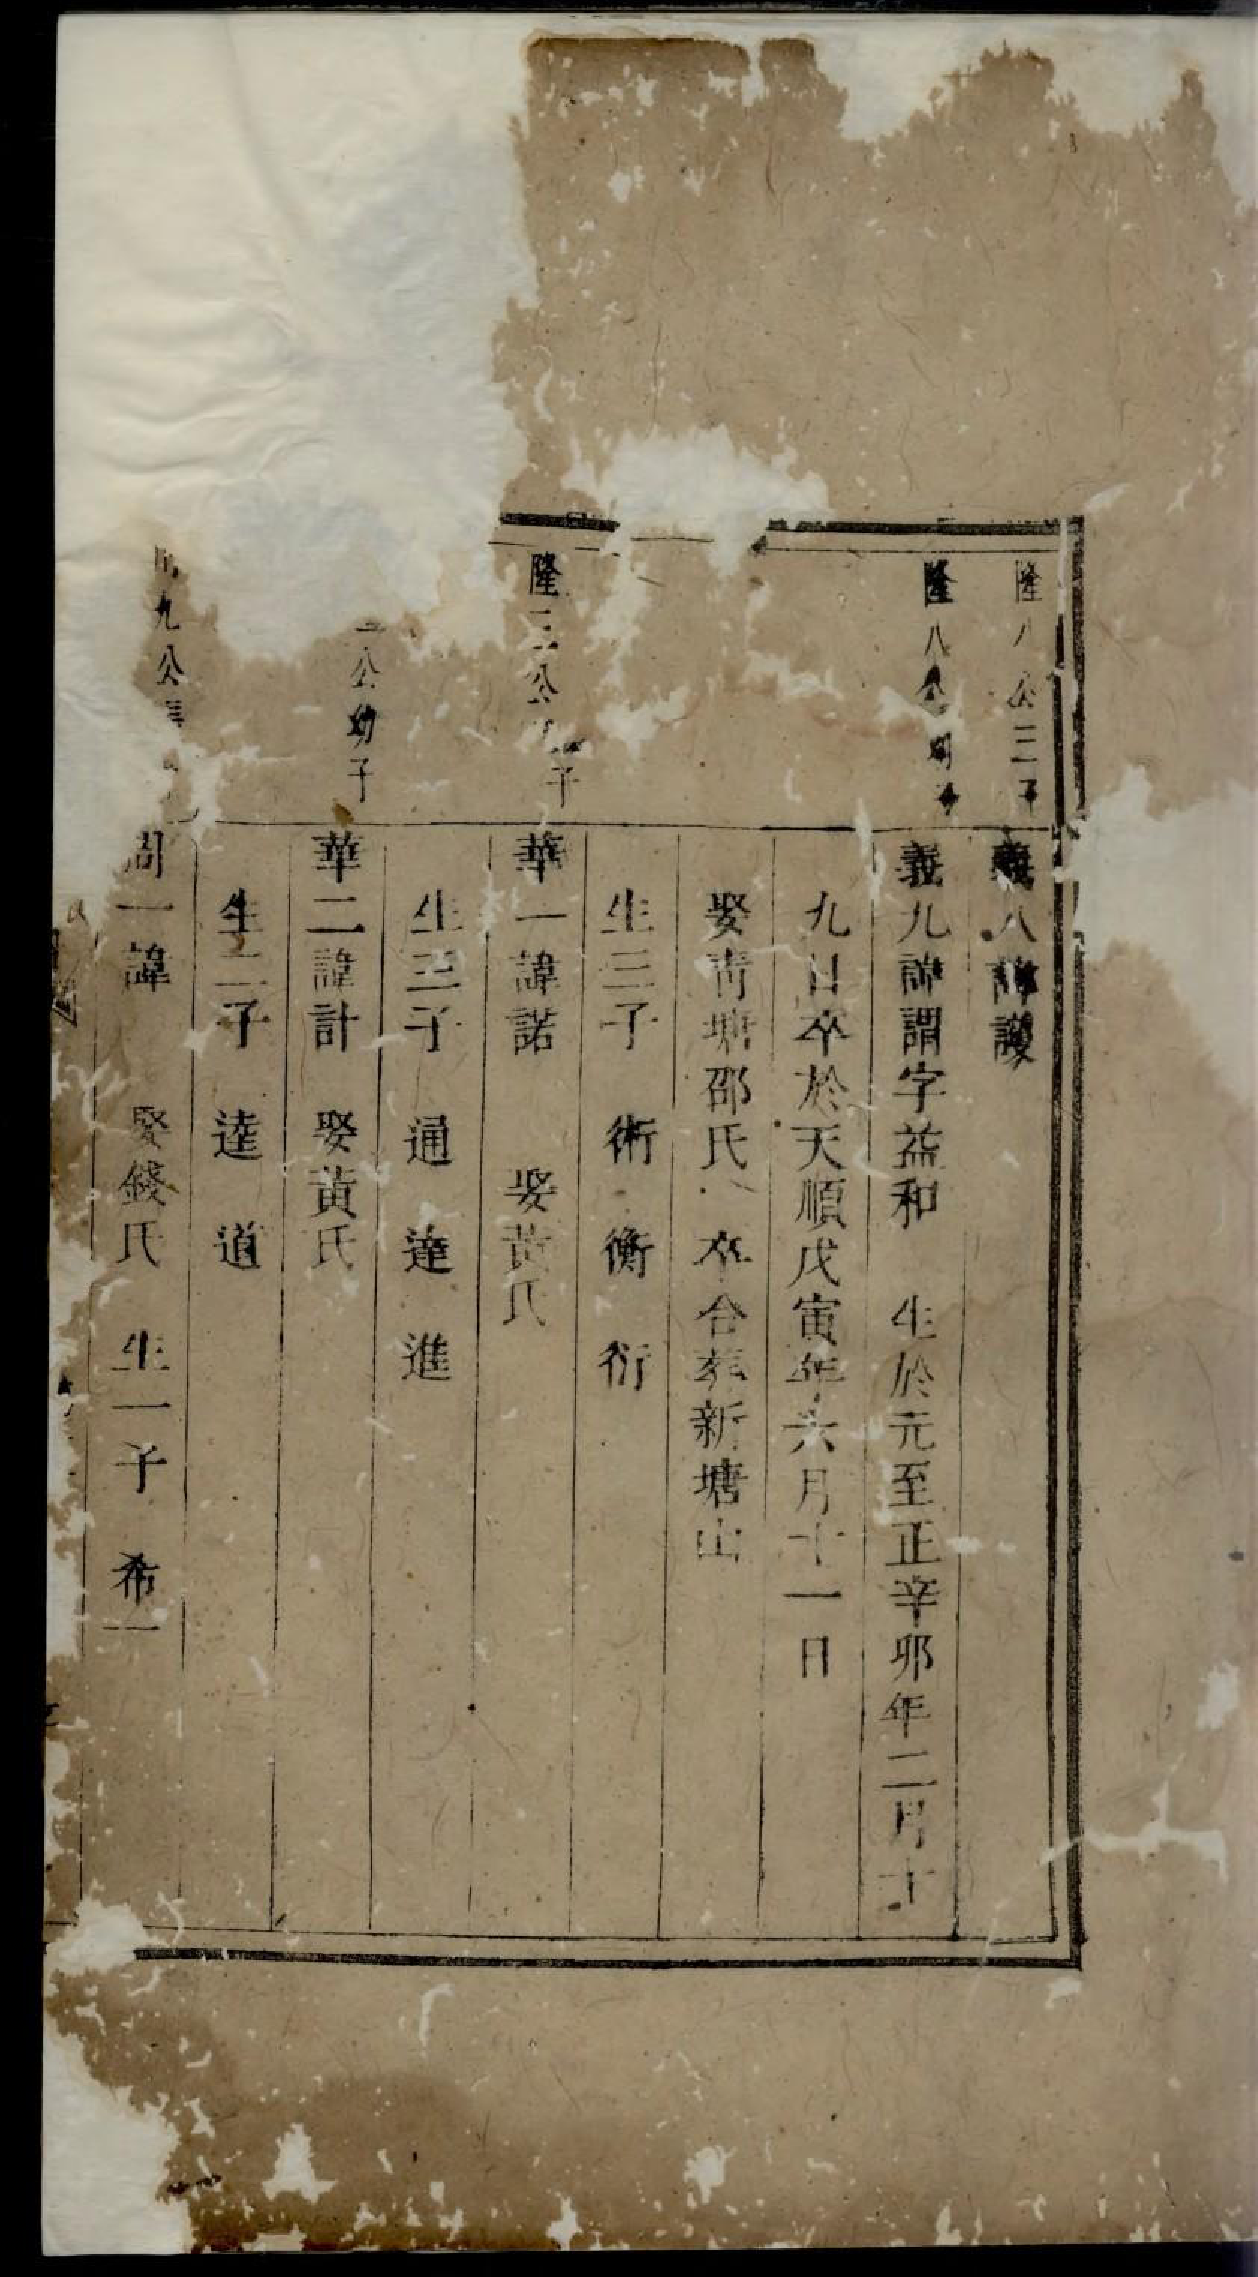 隆八公三子
義八諱護
隆八公
義九諱謂字益和 生於元至正辛卯年二月十
九日卒於天順戊寅年六月十一日
娶青塘邵氏 卒合葬新塘山
生三子 術 衡 衍
隆三公 子
華一諱諾 娶黃氏
生三子 通 達 進
公幼子
華二諱計 娶黃氏
生二子 逵 道
九公
周一諱 娶錢氏 生一子 希一